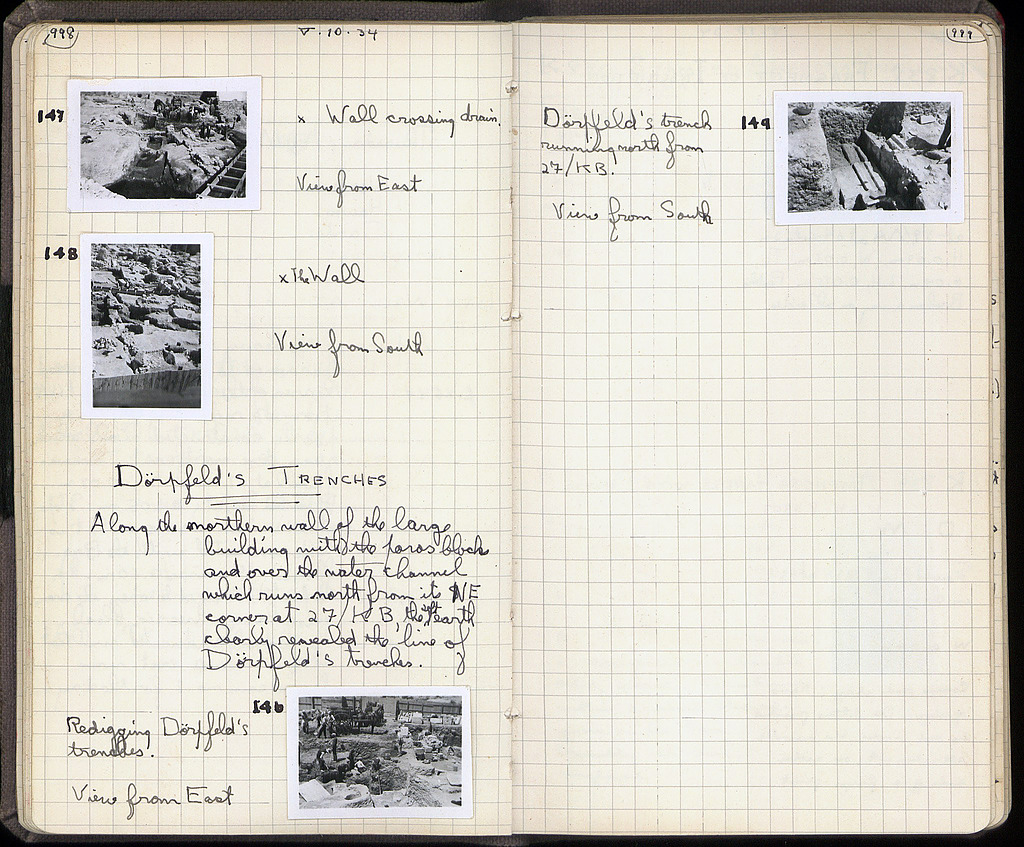 998
V·10·34
147
x Wall crossing drain.
View from East
148
x The Wall
View from South
Dörpfeld's TRENCHES
Along the northern wall of the large
building with the poros blocks
and over the water channel
which runs north from its NE
corner at 27/KB, the earth
clearly revealed the line of
Dörpfeld's trenches.
146
Redigging Dörpfeld's
trenches.
View from East
999
Dörpfeld's trench
running north from
27/KB.
View from South
149